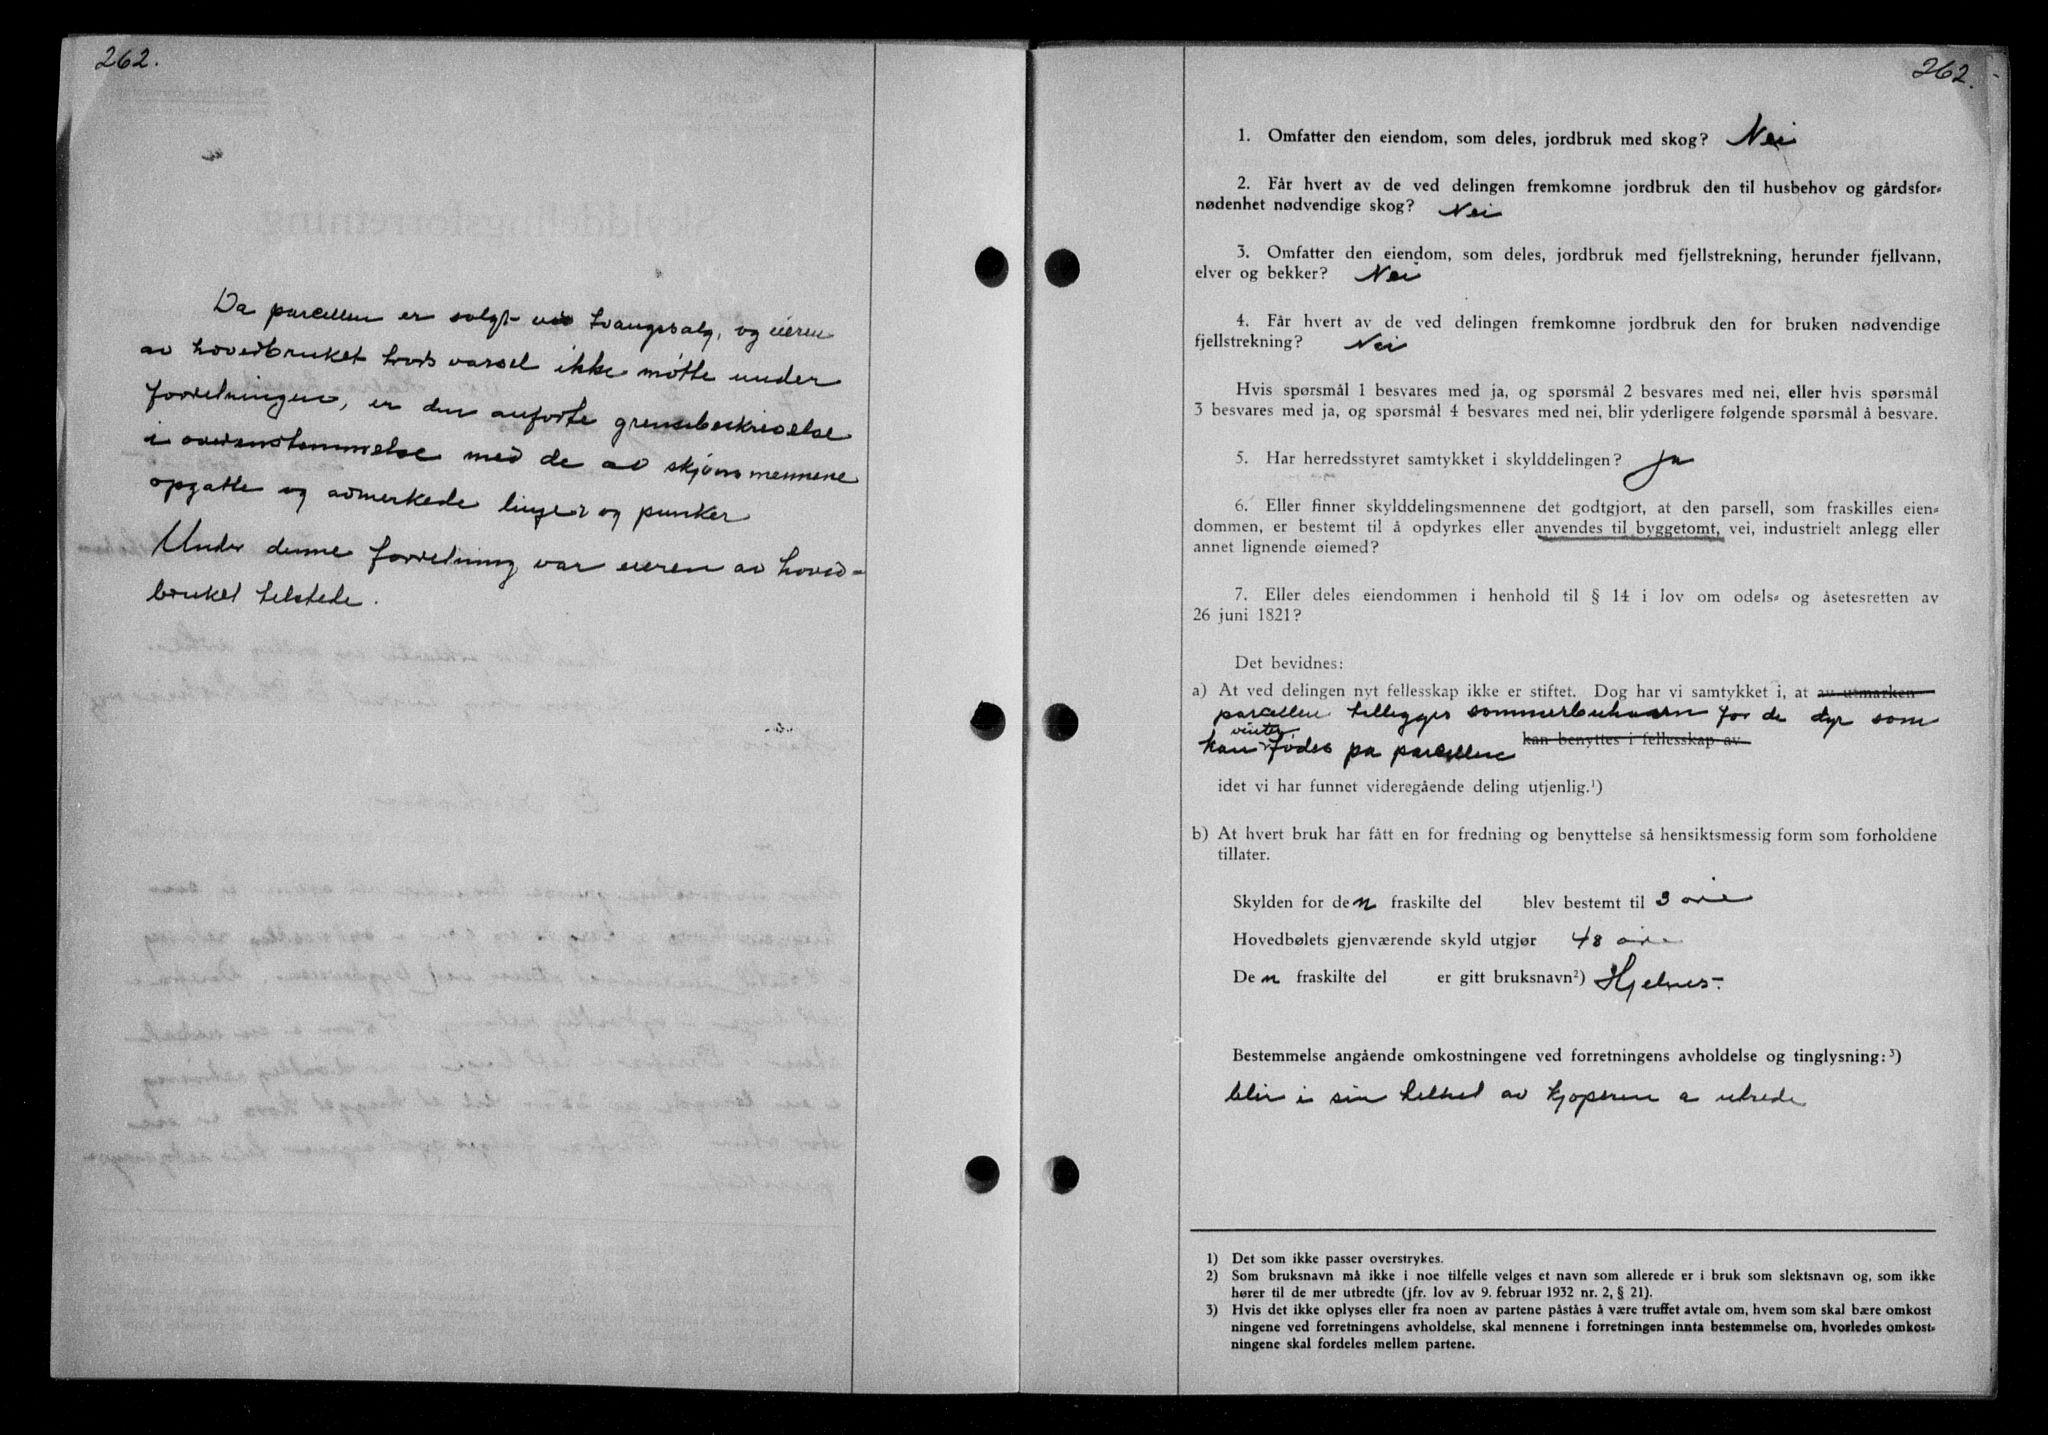 262.
Da parcellen er solgt ved tvangssalg, og eieren
av hovedbruket hvis varsel ikke møtte under
forretningen, er den anførte grensebeskrivelse
i overenstemmelse med de av skjønsmennene
opgatte og avmerkede linjer og punker
Under denne forretning var eieren av hoved-
bruket tilstede.
262.
1. Omfatter den eiendom, som deles, jordbruk med skog? Nei
2. Får hvert av de ved delingen fremkomne jordbruk den til husbehov og gårdsfor-
nødenhet nødvendige skog? Nei
3. Omfatter den eiendom, som deles, jordbruk med fjellstrekning, herunder fjellvann,
elver og bekker? Nei
4. Får hvert av de ved delingen fremkomne jordbruk den for bruken nødvendige
fjellstrekning? Nei
Hvis spørsmål 1 besvares med ja, og spørsmål 2 besvares med nei, eller hvis spørsmål
3 besvares med ja, og spørsmål 4 besvares med nei, blir yderligere følgende spørsmål å besvare.
5. Har herredsstyret samtykket i skylddelingen? Ja
6. Eller finner skylddelingsmennene det godtgjort, at den parsell, som fraskilles eien-
dommen, er bestemt til å opdyrkes eller anvendes til byggetomt, vei, industrielt anlegg eller
annet lignende øiemed?
7. Eller deles eiendommen i henhold til § 14 i lov om odels- og åsetesretten av
26 juni 1821?
Det bevidnes:
a) At ved delingen nyt fellesskap ikke er stiftet. Dog har vi samtykket i, at av utmarken
parcellen tillegges sommerbuhavn for de dyr som
kan vinterfødes på parcellene kan benyttes i fellesskap av
idet vi har funnet videregående deling utjenlig.¹)
b) At hvert bruk har fått en for fredning og benyttelse så hensiktsmessig form som forholdene
tillater.
Skylden for den fraskilte del blev bestemt til 3 øre
Hovedbølets gjenværende skyld utgjør 48 øre
Den fraskilte del er gitt bruksnavn²) Hjelnes.
Bestemmelse angående omkostningene ved forretningens avholdelse og tinglysning:³)
blir i sin helhet av kjøperen a utrede
1) Det som ikke passer overstrykes.
2) Som bruksnavn må ikke i noe tilfelle velges et navn som allerede er i bruk som slektsnavn og, som ikke
hører til de mer utbredte (jfr. lov av 9. februar 1932 nr. 2, § 21).
3) Hvis det ikke oplyses eller fra noen av partene påståes å være truffet avtale om, hvem som skal bære omkost
ningene ved forretningens avholdelse, skal mennene i forretningen innta bestemmelse om, hvorledes omkost-
ningene skal fordeles mellem partene.